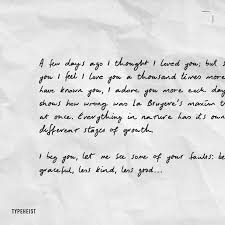 A few days ago I thought I loved you; but s
you I feel I love you a thousand times more
have known you, I adore you more each day
shows how wrong was La Bruyere's maxim t
at once. Everything in nature has its own
different stages of growth.
I beg you, let me see some of your faults: be
graceful, less kind, less good...
TYPEHEIST